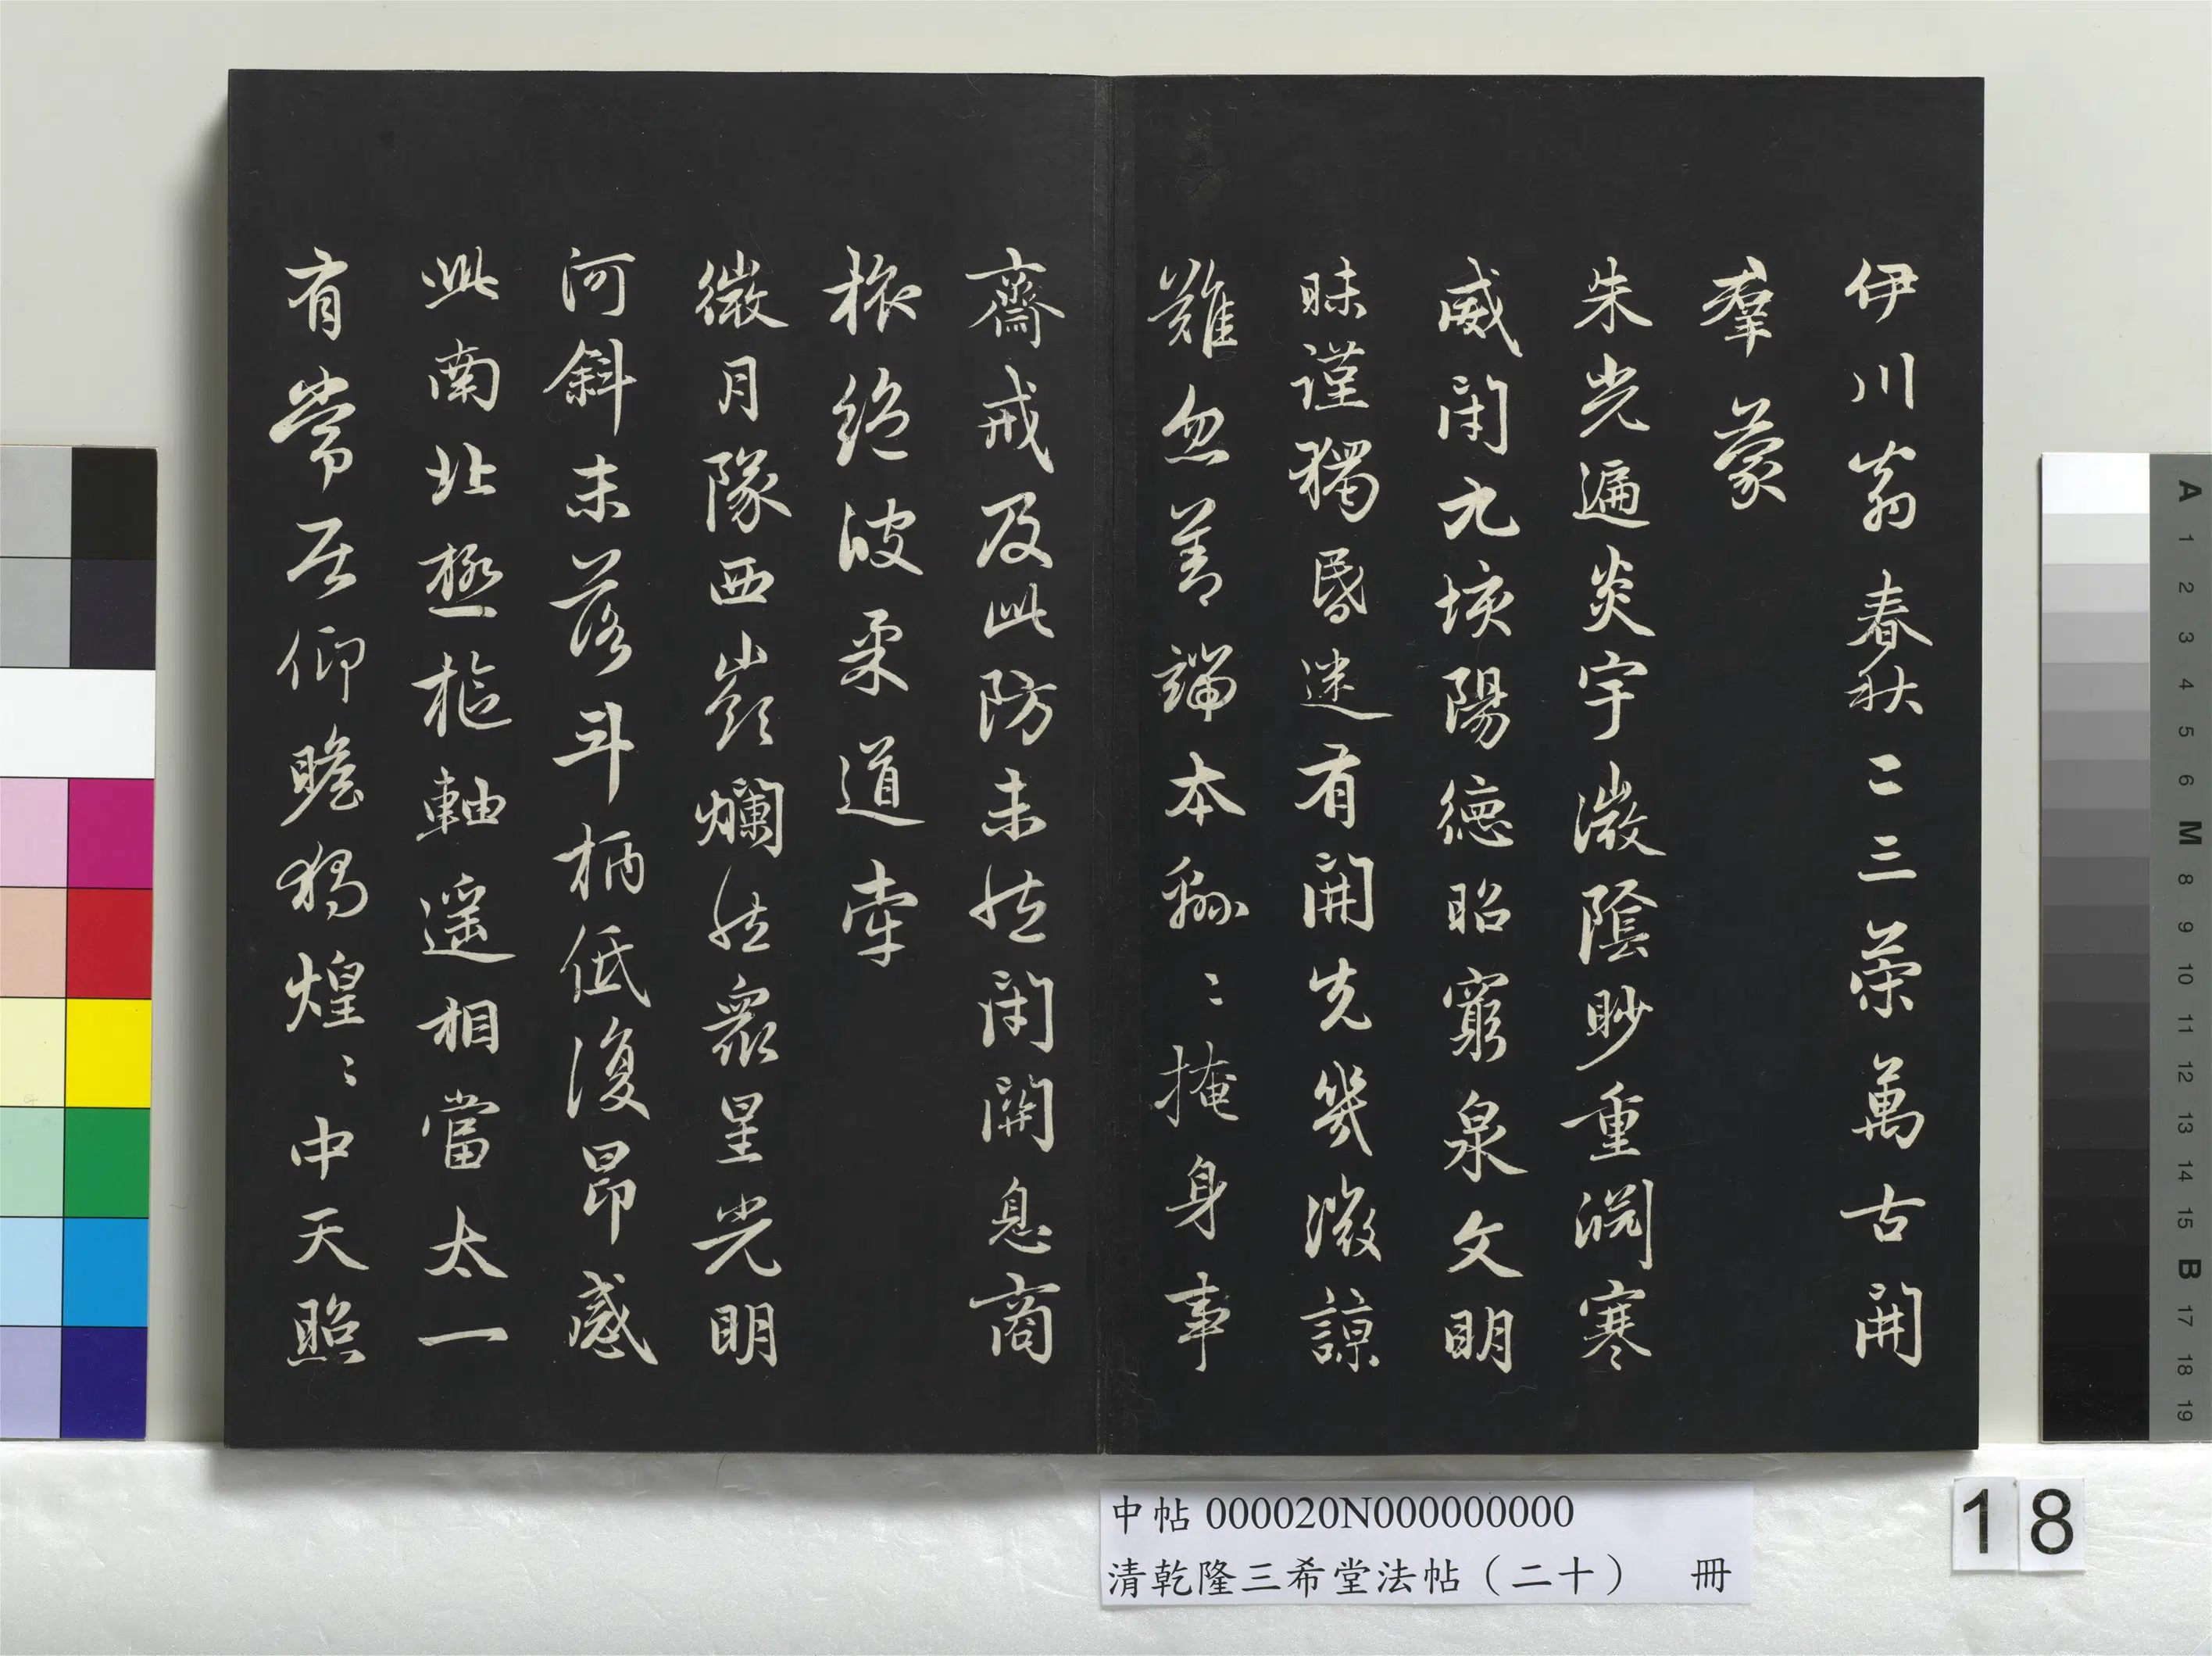 伊川翁春秋二三策萬古開
羣蒙
朱光遍炎宇微陰眇重淵寒
威閉九垓陽德昭窮泉文明
昧謹獨昏迷有開先幾微諒
難忽善端本綿〻掩身事
齋戒及此防未然閉關息商
旅絕彼柔道牽
微月隊西嶺爛然衆星光明
河斜未落斗柄低復昂感
此南北極樞軸遥相當太一
有常居仰瞻獨煌〻中天照
中帖 000020N000000000
清乾隆三希堂法帖（二十） 冊
18
A 1 2 3 4 5 6 M 8 9 10 11 12 13 14 15 B 17 18 19